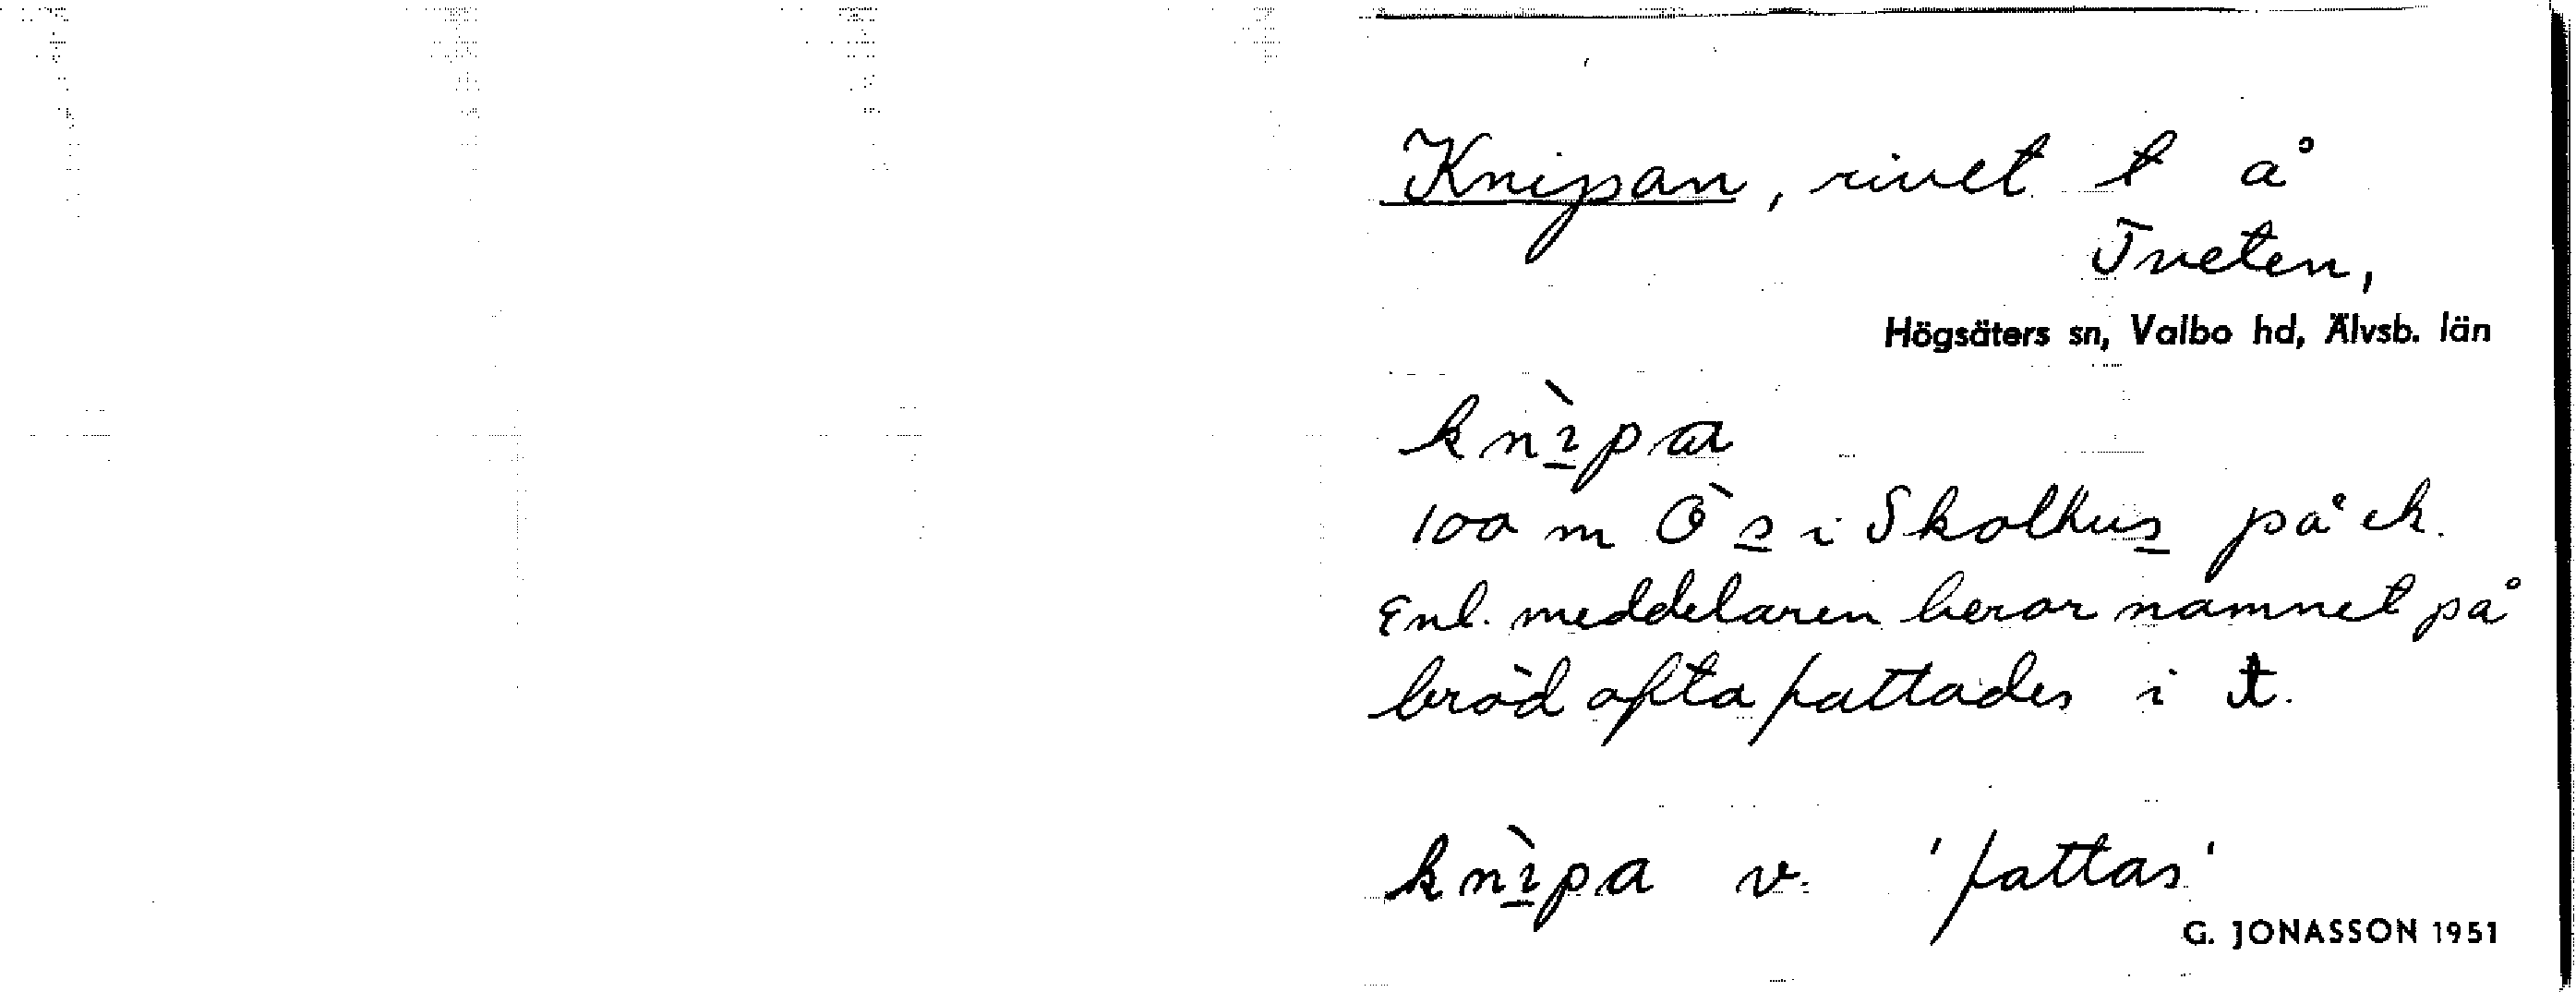 Knipan, rivet t å
Tveten,
Högsäters sn, Valbo hd, Älvsb. län
knìpa
100 m Ö s i Skolhus på ek.
Enl. meddelaren beror namnet på
bröd ofta fattades i t.
knìpa v. 'fattas'
G. JONASSON 1951